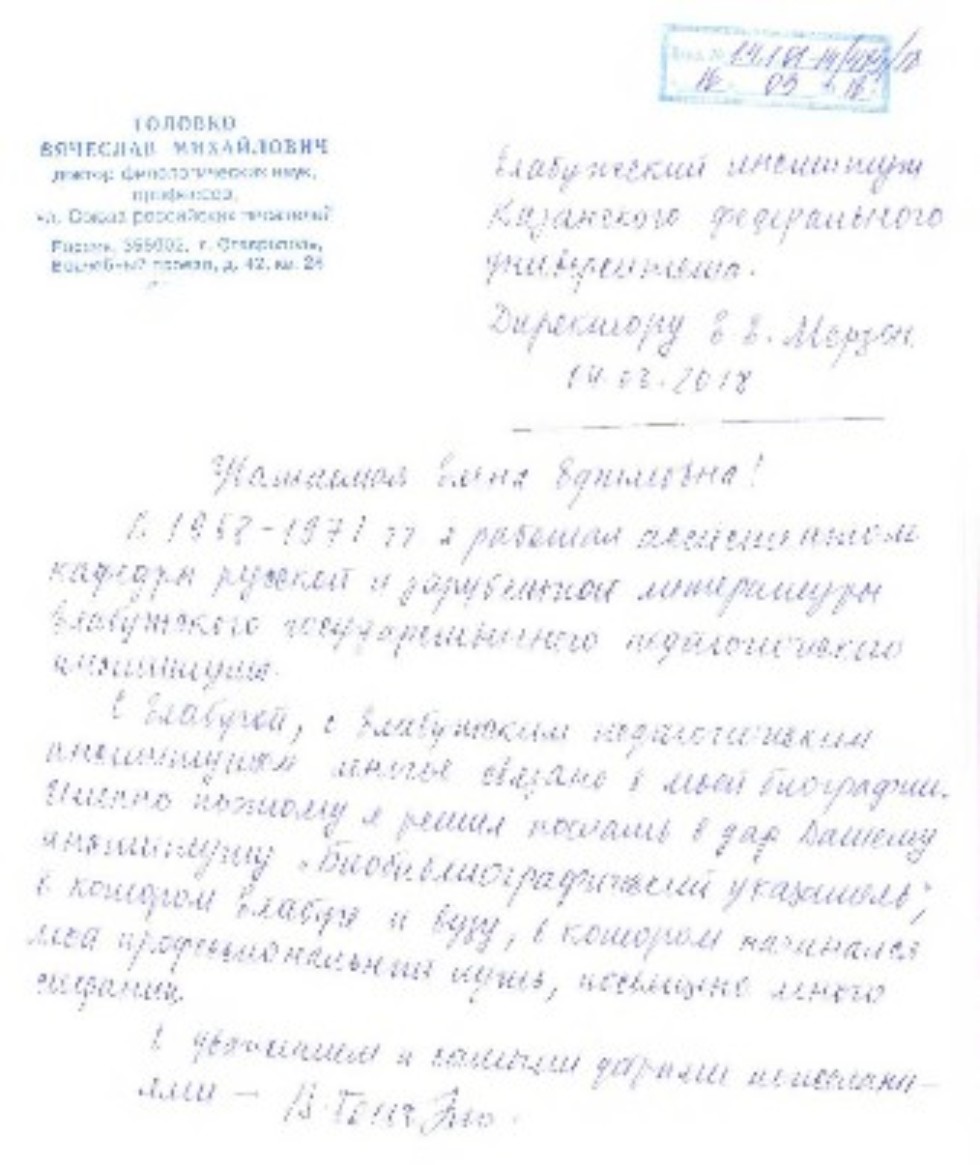 ГОЛОВКО
ВЯЧЕСЛАВ МИХАЙЛОВИЧ
доктор филологических наук,
профессор,
чл. Союза российских писателей
Россия, г. Ставрополь,
д. 42, кв. 28
16 03 18
Елабужский институт
Казанского федерального
университета.
Директору Е. Е. Мерзон
14.03.2018
Уважаемая Елена Ефимовна!
В 1968-1971 гг я работал ассистентом
кафедры русской и зарубежной литературы
Елабужского государственного педагогического
института.
С Елабугой, с Елабужским педагогическим
институтом многое связано в моей биографии.
Именно поэтому я решил послать в дар Вашему
институту „Биобиблиографический указатель",
в котором Елабуге и вузу, в котором начинался
мой профессиональный путь, посвящено много
страниц.
С уважением и самыми добрыми пожелани-
ями —